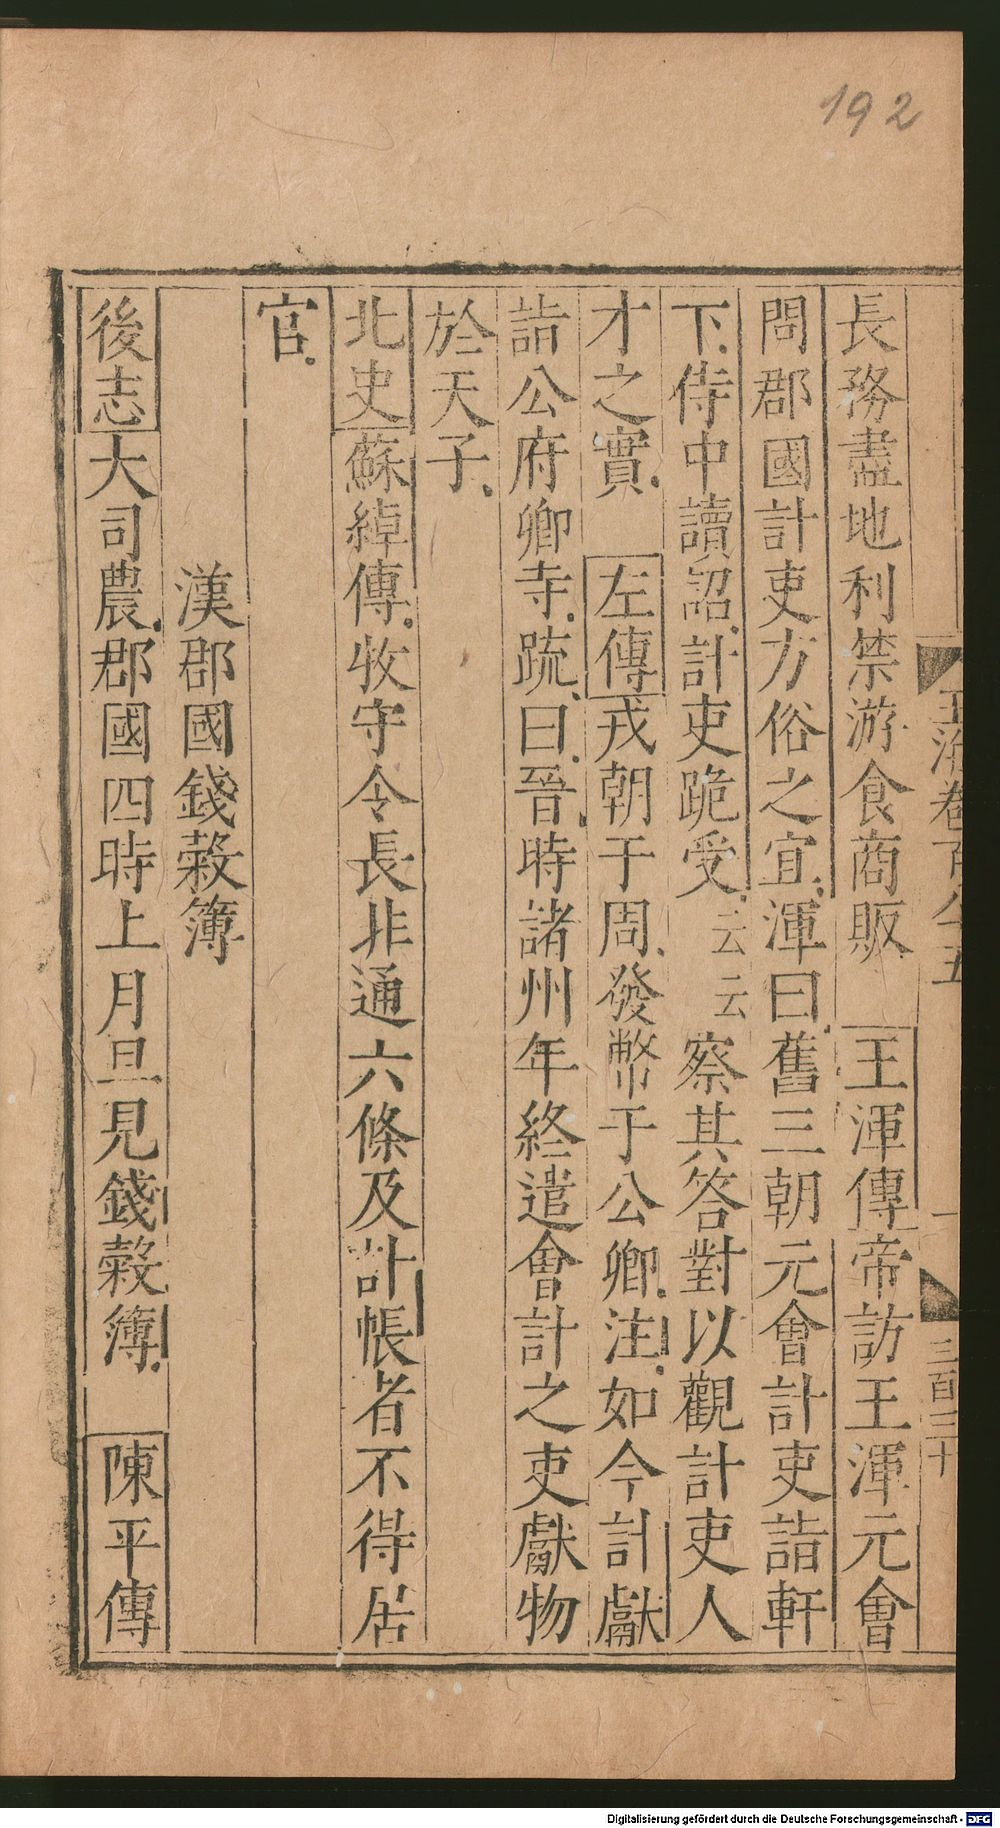 192
玉海卷百八十五
一
三百三十
長務盡地利禁游食商販　王渾傳帝訪王渾元會
問郡國計吏方俗之宜渾曰舊三朝元會計吏詣軒
下侍中讀詔計吏跪受云云察其答對以觀計吏人
才之實　左傳戎朝于周發幣于公卿注如今計獻
詣公府卿寺䟽曰晉時諸州年終遣會計之吏獻物
於天子
北史蘇綽傳牧守令長非通六條及計帳者不得居
官
漢郡國錢穀簿
後志大司農郡國四時上月旦見錢穀簿　陳平傳
Digitalisierung gefördert durch die Deutsche Forschungsgemeinschaft - DFG